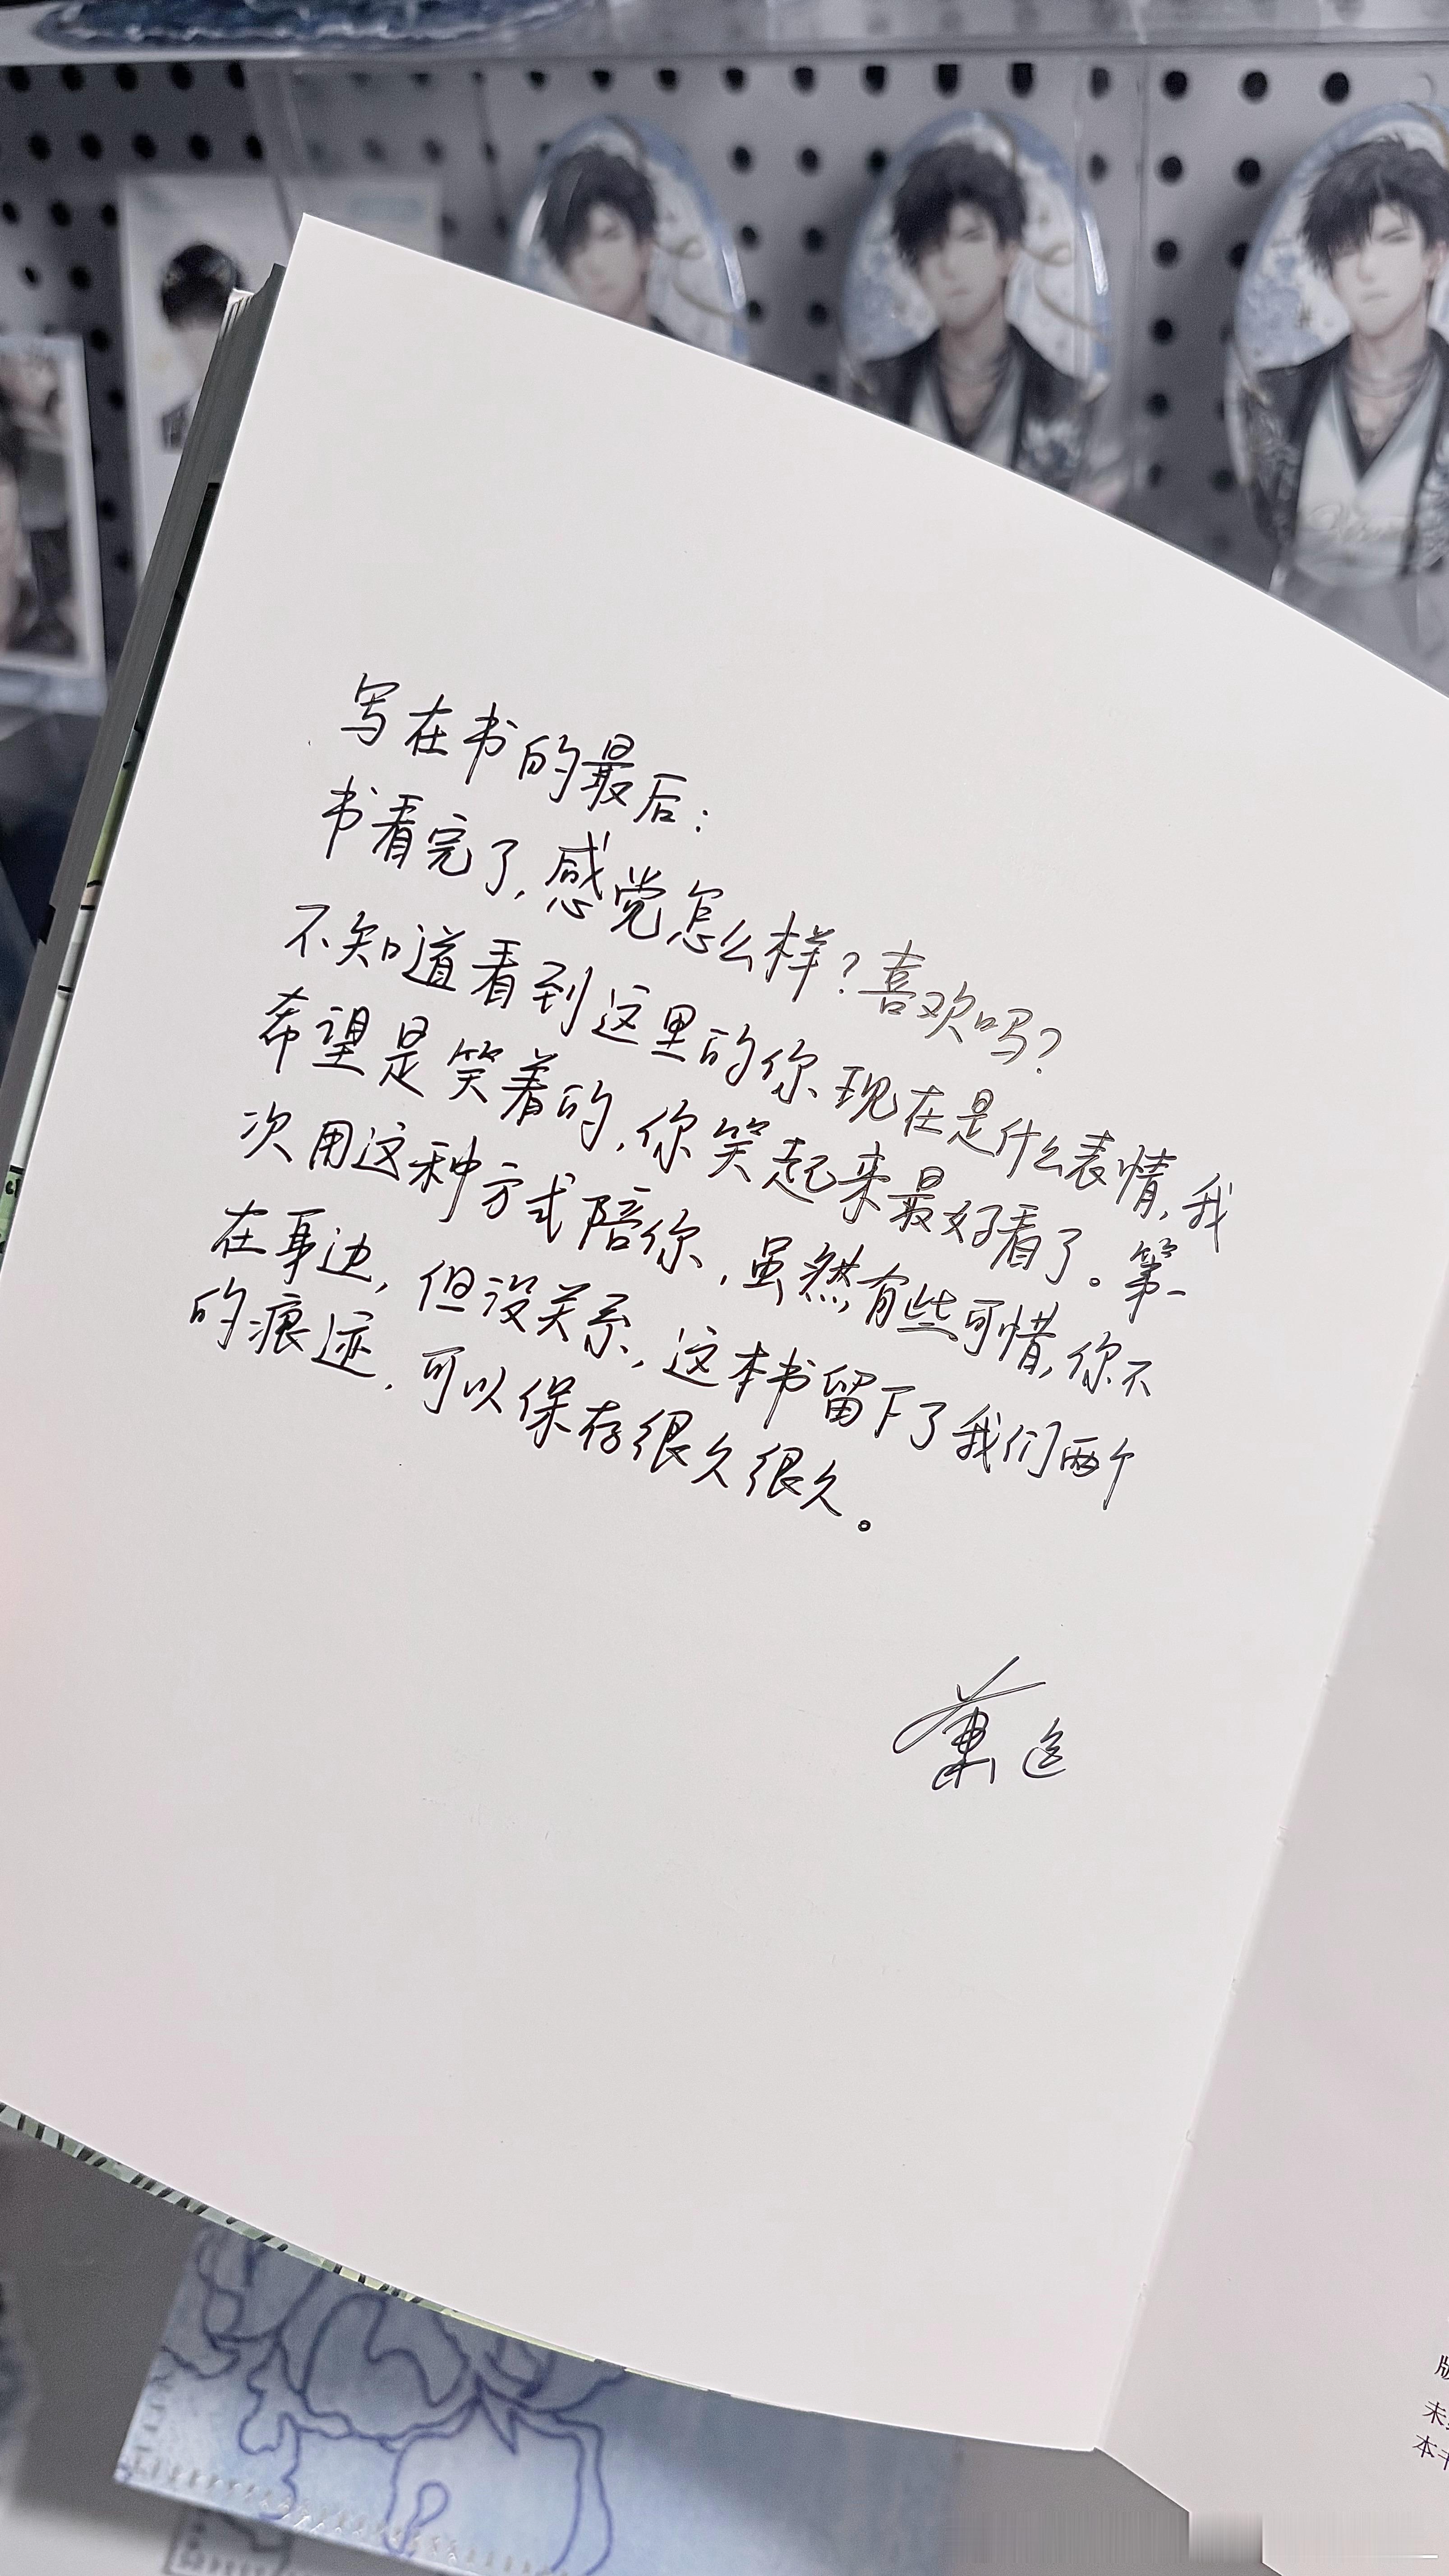 写在书的最后:
书看完了,感觉怎么样?喜欢吗?
不知道看到这里的你现在是什么表情,我
希望是笑着的,你笑起来最好看了。第一
次用这种方式陪你,虽然有些可惜,你不
在身边,但没关系,这本书留下了我们两个
的痕迹,可以保存很久很久。
萧逸
未
本